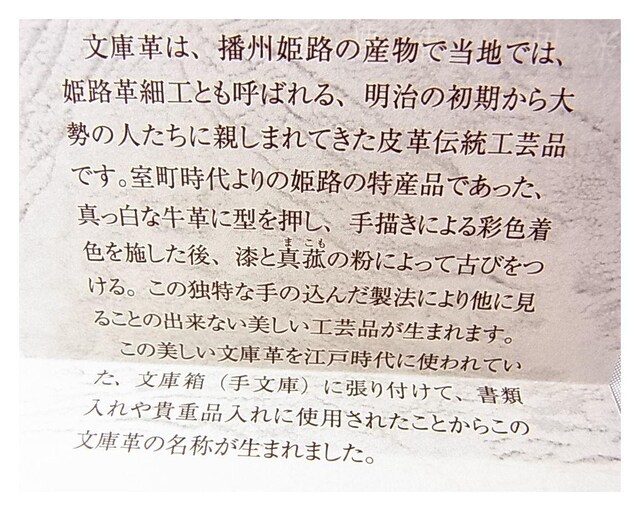 文庫革は、播州姫路の産物で当地では、
姫路革細工とも呼ばれる、明治の初期から大
勢の人たちに親しまれてきた皮革伝統工芸品
です。室町時代よりの姫路の特産品であった、
真っ白な牛革に型を押し、手描きによる彩色着
色を施した後、漆と真菰の粉によって古びをつ
ける。この独特な手の込んだ製法により他に見
ることの出来ない美しい工芸品が生まれます。
この美しい文庫革を江戸時代に使われてい
た、文庫箱（手文庫）に張り付けて、書類
入れや貴重品入れに使用されたことからこの
文庫革の名称が生まれました。